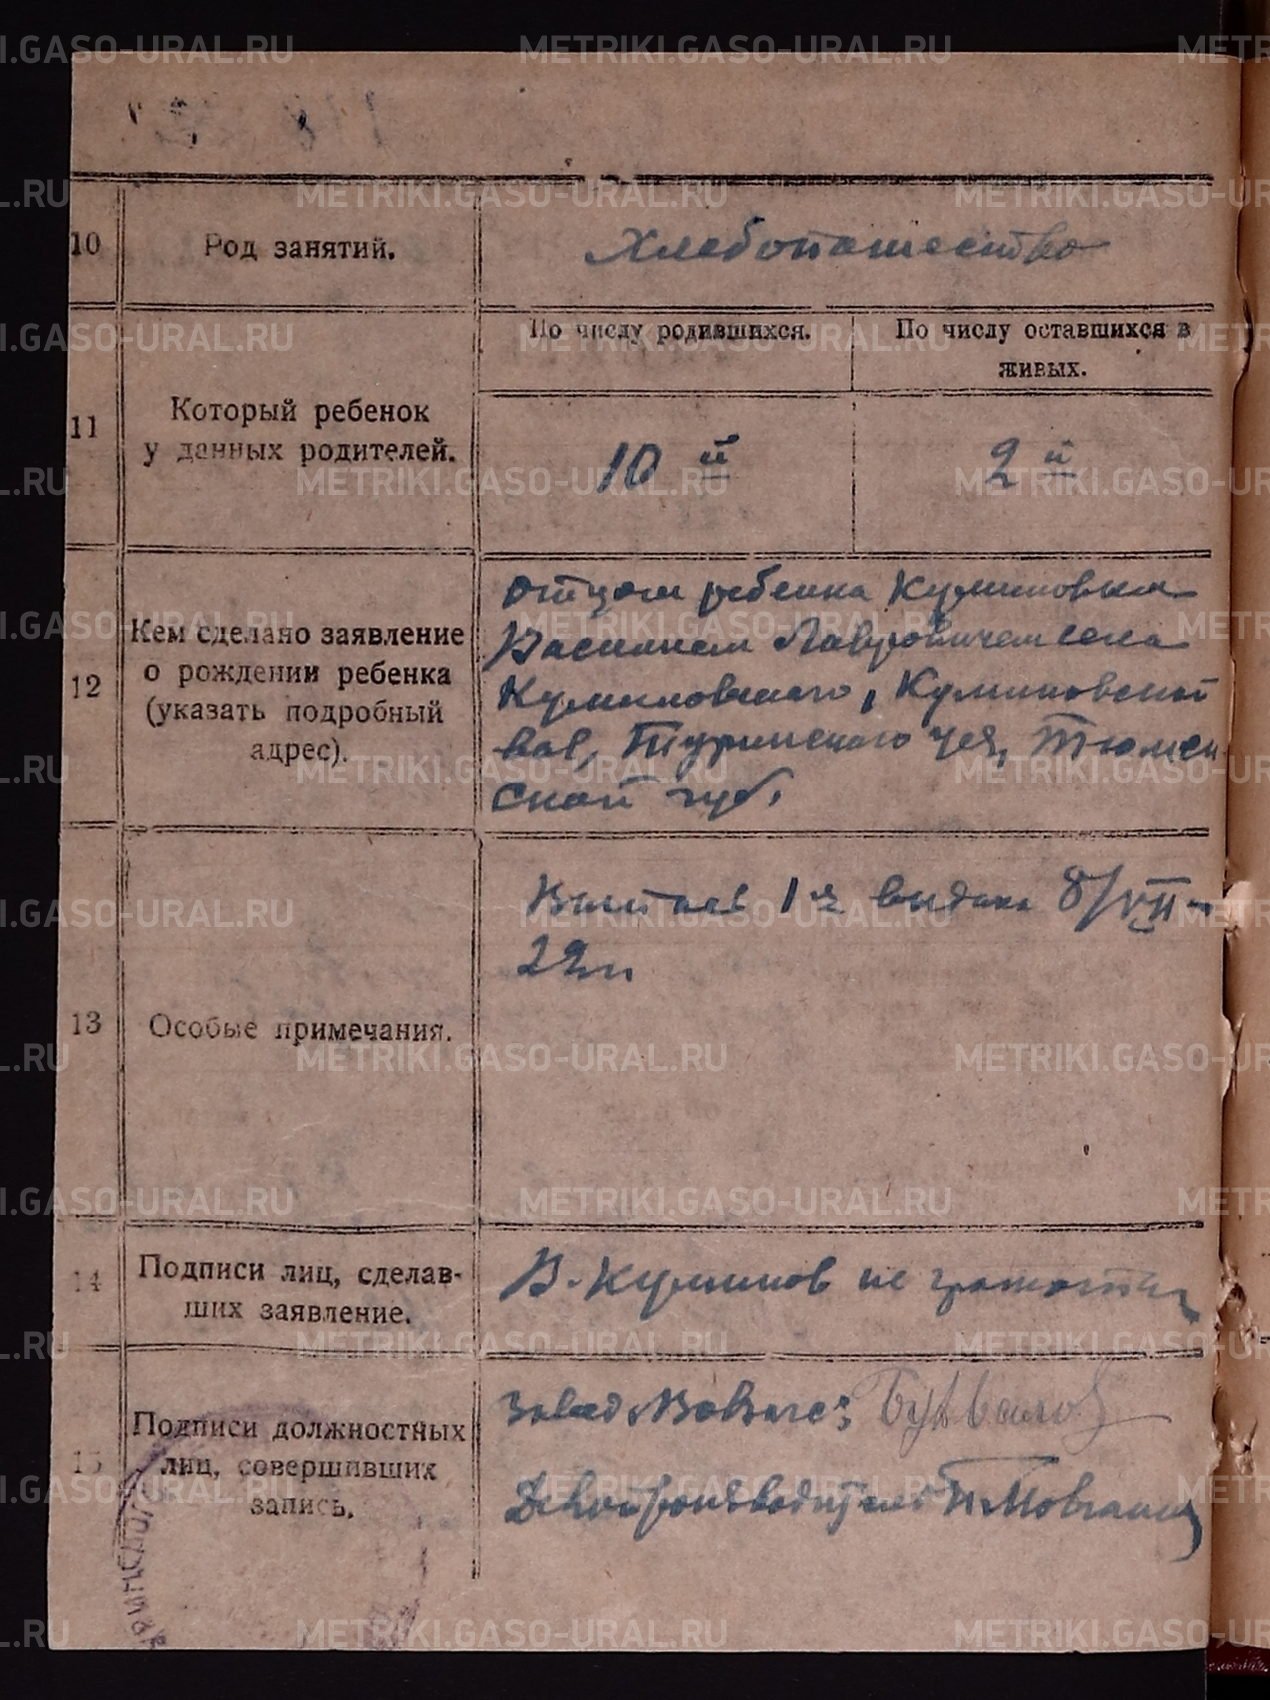 10
Род занятий.
Хлебопашество
11
Который ребенок
у данных родителей.
По числу родившихся.
По числу оставшихся в
живых.
10 й
2 й
12
Кем сделано заявление
о рождении ребенка
(указать подробный
адрес).
Отцом ребенка Куминовым
Василием Лавровичем села
Куминовского, Куминовской
вол, Туринского уез, Тюмен
ской губ.
13
Особые примечания.
1я выдана 8/VII-
22г.
14
Подписи лиц, сделав-
ших заявление.
В. Куминов не грамотн
15
Подписи должностных
лиц, совершивших
запись.
Завед
Делопроизводитель
METRIKI.GASO-URAL.RU